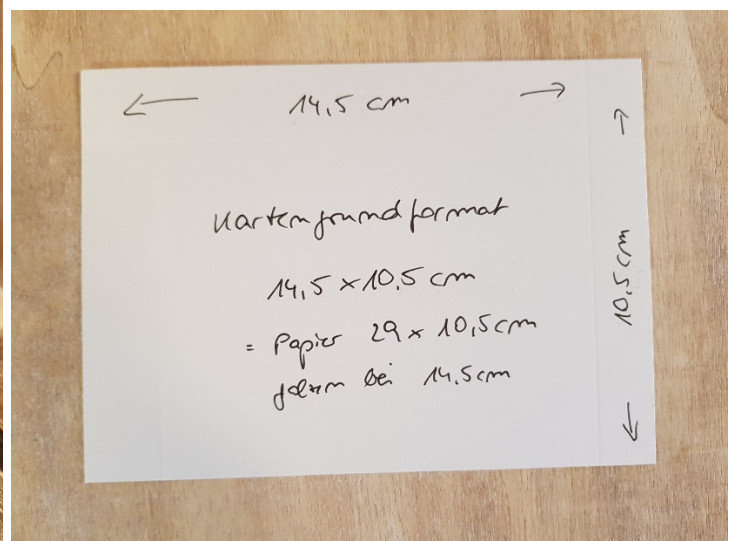 ← 14,5 cm →
Kartengrundformat
14,5 x 10,5 cm
= Papier 29 x 10,5 cm
falzen bei 14,5 cm
← 10,5 cm →